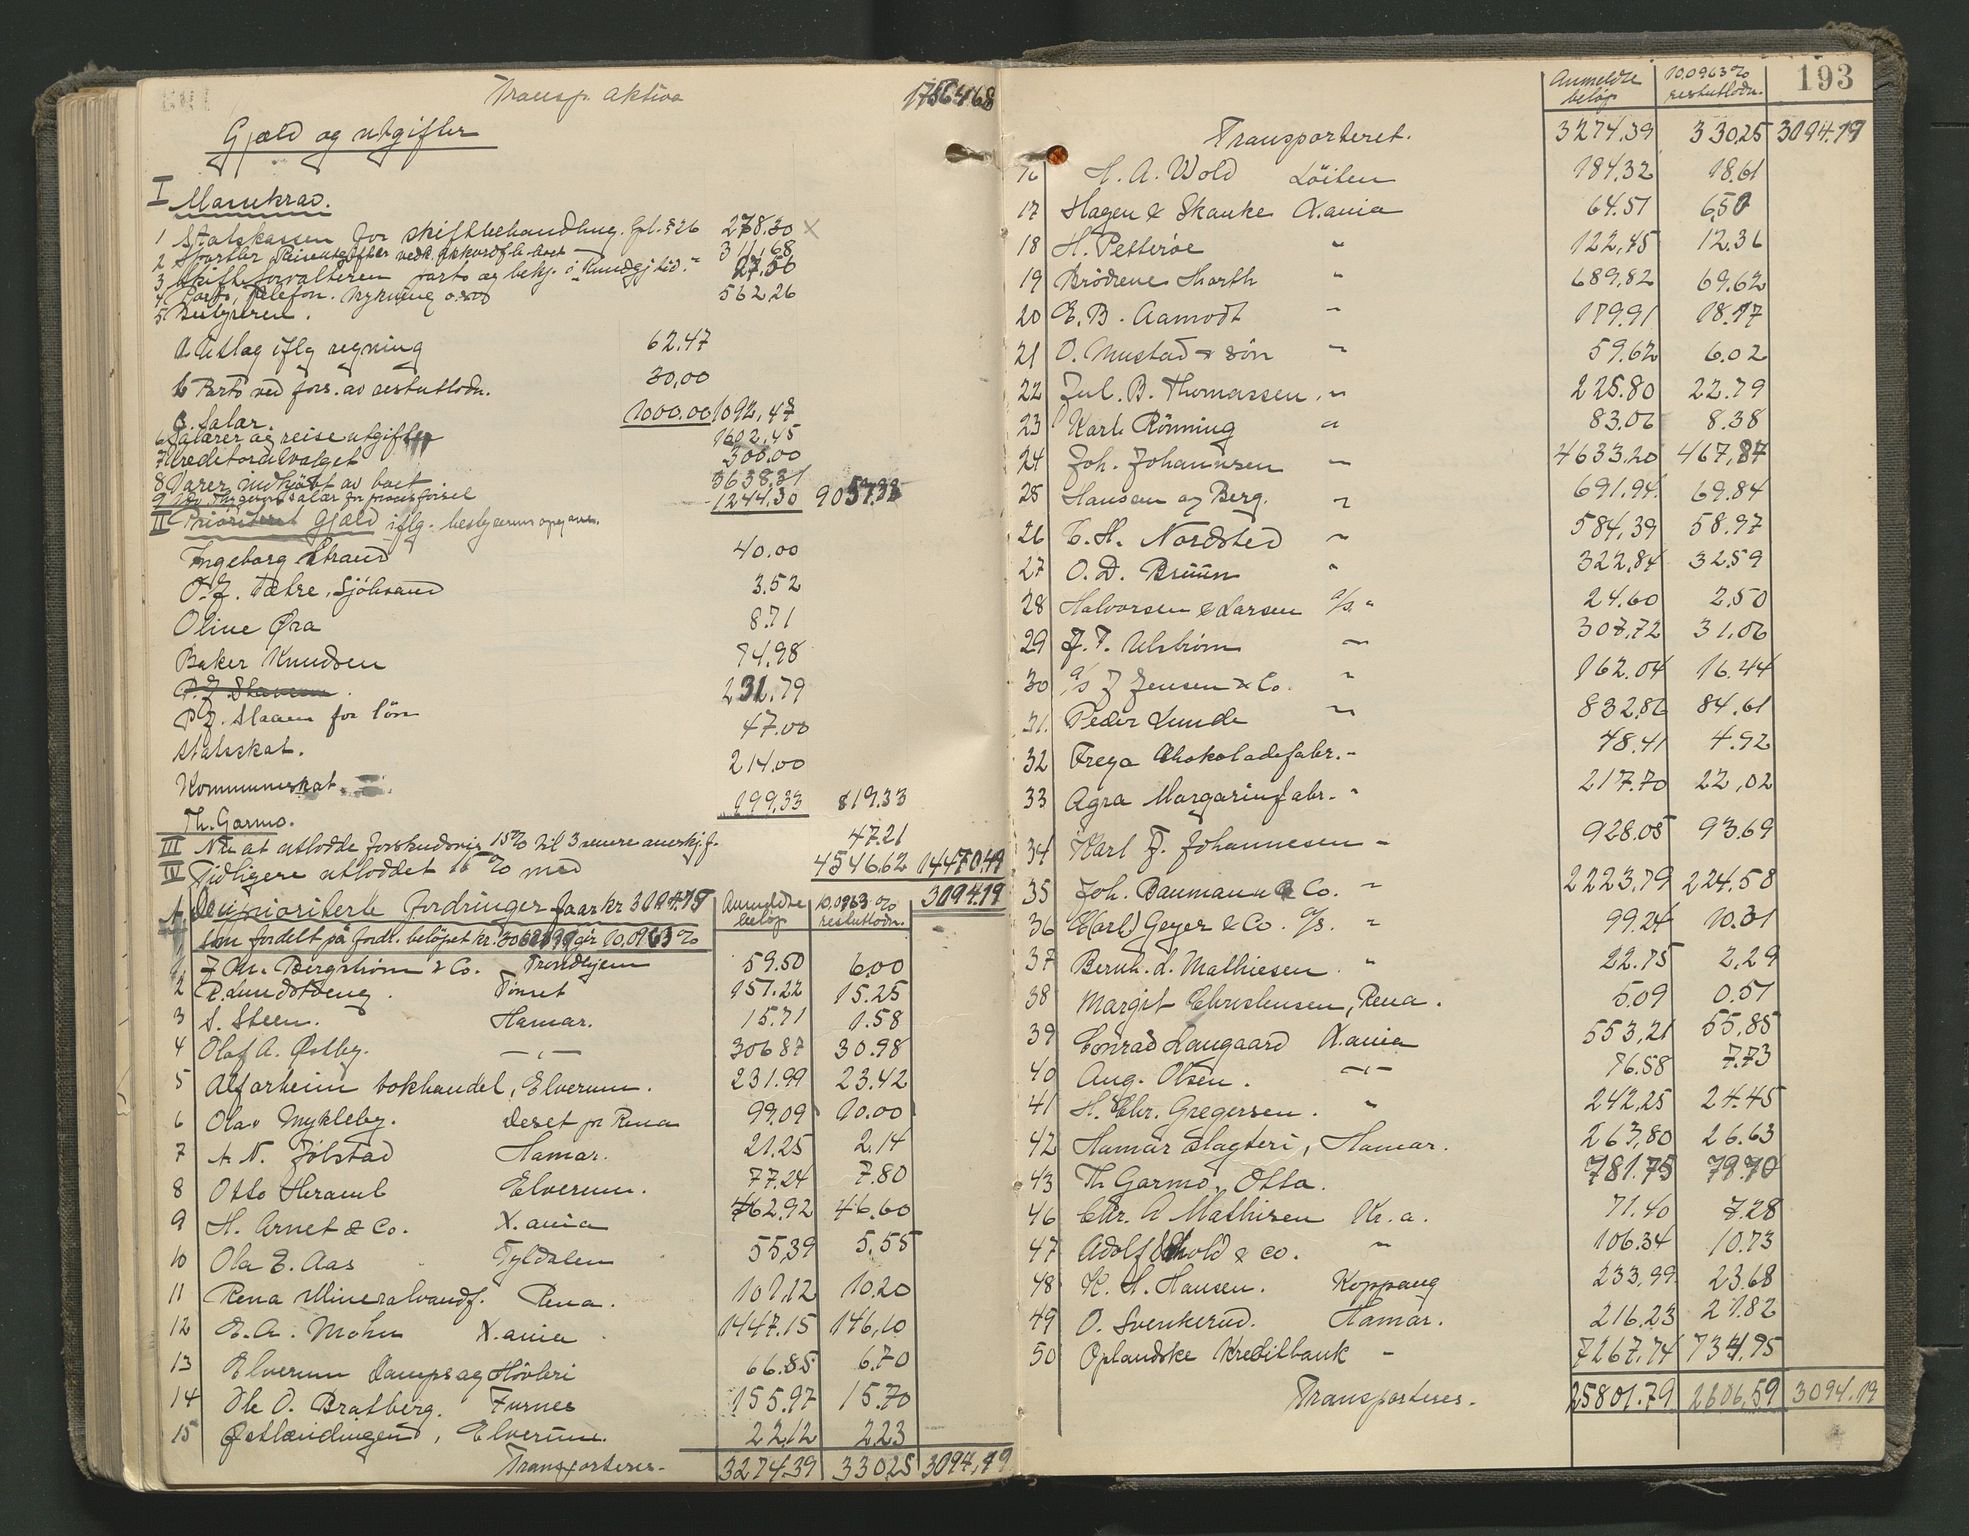 Transp. aktiva 17564.68
Gjæld og utgifter
I Massekrav.
1 Statskassen for skiftebehandling. Gpl. § 26 278.30 ×
2 Sportler, Reiseutgifter vedk. akkordfh. boet 311,68
3 Skifteforvalteren porto og bekj. i Kundgj.tid. 27.50
4 Porto, telefon. 562,26
5 Bestyreren.
a Utlæg iflg regning 62.47
b Porto ved fors. av restutlodn. 30,00
c. Salær. 1000.00 1092,47
6 Salærer og reiseutgifter 1602,45
7 Kreditorutvalget 300.00
8 Varer indkjøbt av boet 3638,31
9 salær for 1244.30 9057.33
II Prioritert Gjæld iflg. bestyrerens opgave.
Ingeborg Strand 40.00
O. J. Fæhre, Sjölisand 3.52
Oline Øra 8.71
Baker Knudsen 74.98
P. J. Slaaen for lön 231.79
Statsskat. 47.00
Kommuneskat. 214.00
Th. Garmo. 199,33 819.33
III Nu at utlodde forskudsvis 15% til 3 senere anerkj. f. 47.21
IV Tidligere utloddet 15% med 4546.62 14470.49
Uprioriterte fordringer faar kr 3094.19 Anmeldte beløp 10,0963% restutlodn. 3094.19
som fordelt på fordr. beløpet kr. gir 10,0963%
1 J. M. Bergström & Co. Trondhjem 59.50 6.00
2 P. Lundstveng. Tönset 151.22 15.25
3 S. Steen. Hamar. 15.71 1.58
4 Olaf A. Østby. —„— 306.87 30.98
5 Alfarheim bokhandel, Elverum. 231.99 23.42
6 Olav Mykleby. Deset pr Rena 99.09 10.00
7 A. N. Jölstad Hamar. 21.25 2.14
8 Otto Hramb Elverum. 77.24 7.80
9 H. Arnet & Co. X.ania 462.92 46.60
10 Ola E. Aas Tyldalen 55,39 5.55
11 Rena Mineralvandf. Rena. 101,12 10.20
12 E. A. Mohn X.ania 1447.15 146,10
13 Elverum Dampsag Hövleri 66.85 6.70
14 Ole O. Bratberg. Furnes 155,97 15.70
15 Østlændingen, Elverum. 22,12 2.23
Transporteres. 3274.39 330.25 3094,19
193
Anmeldte beløp 10,0963% restutlodn.
Transporteret. 3274,39 330.25 3094.19
16 H. A. Wold Löiten 184,32 18.61
17 Hagen & Skanke X.ania 64.51 6,50
18 H. Petteröe „ 122,45 12,36
19 Brödrene Harth „ 689,82 69.62
20 E. B. Aamodt „ 179.91 18.17
21 O. Mustad & Sön „ 59.62 6.02
22 Jul. B. Thomassen, „ 225.80 22.79
23 Karl Rönning „ 83.06 8.38
24 Joh. Johannsen „ 4633,20 467,87
25 Hansen og Berg. „ 691.94 69.84
26 C. H. Nordsted „ 584,39 58.97
27 O. D. Bruun „ 322,84 32.59
28 Halvorsen & Larsen A/s. „ 24.60 2,50
29 J. T. Ulstrøm „ 307,72 31,06
30 A/s J Jensen & Co. „ 162.04 16.44
31. Peder Lunde „ 832,86 84.61
32 Freya Chokoladefabr. „ 48.41 4.92
33 Agra Margarinfabr. „ 217.70 22,02
34 Karl F. Johannesen „ 928.05 93.69
35 Joh. Baumann & Co. „ 2223,79 224.58
36 E(arl) Geyer & Co. A/s. „ 99.24 10.01
37 Bernh. L. Mathiesen „ 22.75 2,29
38 Margit Christensen, Rena. 5.09 0.51
39 Conrad Langaard X.ania 553,21 55,85
40 Aug. Olsen. —„— 76.58 7.73
41 H. Chr. Gregersen. „ 242,25 24.45
42 Hamar Slagteri, Hamar. 263,80 26.63
43 Th Garmo, Otta. 781.75 79.70
46 Chr. A Mathisen Kr.a. 71.40 7.28
47 Adolf Schold & Co. „ 106.34 10.73
48 K. H. Hansen. Koppang 233,99 23.68
49 O. Svenkerud. Hamar. 216.23 21.82
50 Oplandske Kreditbank „ 7267,74 734,95
Transporteres. 25801.79 2606,59 3094.19